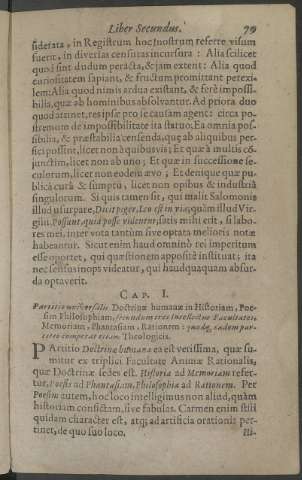 Liber Secundus. 79
siderata, in Registrum hoc nostrum referre visum
fuerit, in diversas censuras incursura: Alia scilicet
quod sint dudum peracta, & jam extent: Alia quod
curiositatem sapiant, & fructum promittant perexi-
lem: Alia quod nimis ardua existant, & ferè impossi-
bilia, quæ ab hominibus absolvantur. Ad priora duo
quod attinet, res ipsæ pro se causam agent: circa po-
stremum de impossibilitate ita statuo; Ea omnia pos-
sibilia, & præstabilia censenda, quæ ab aliquibus per-
fici possint, licet non à quibusvis; Et quæ à multis cō-
junctim, licet non ab uno; Et quæ in successione se-
culorum, licet non eodem ævo; Et denique quæ pu-
blicâ curâ & sumptu, licet non opibus & industriâ
singulorum. Si quis tamen sit, qui malit Salomonis
illud usurpare, Dicit piger, Leo est in viâ; quàm illud Vir-
gilii, Possunt, quia posse videntur; satis mihi erit, si labo-
res mei, inter vota tantùm sive optata melioris notæ
habeantur. Sicut enim haud omninò rei imperitum
esse oportet, qui quæstionem appositè instituat; ita
nec sensus inops videatur, qui haudquaquam absur-
da optaverit.
CAP. I.
Partitio universalis Doctrinæ humanæ in Historiam, Poe-
sim Philosophiam, secundum tres Intellectus Facultates,
Memoriam, Phantasiam, Rationem: quodq; eadem par-
titio competat etiam Theologicis.
PArtitio Doctrinæ humanæ ea est verissima, quæ su-
mitur ex triplici Facultate Animæ Rationalis,
quæ Doctrinæ sedes est. Historia ad Memoriam refer-
tur, Poesis ad Phantasiam, Philosophia ad Rationem. Per
Poesim autem, hoc loco intelligimus non aliud, quàm
historiam confictam, sive fabulas. Carmen enim stili
quidam character est, atq; ad artificia orationis per-
tinet, de quo suo loco.
Hi-